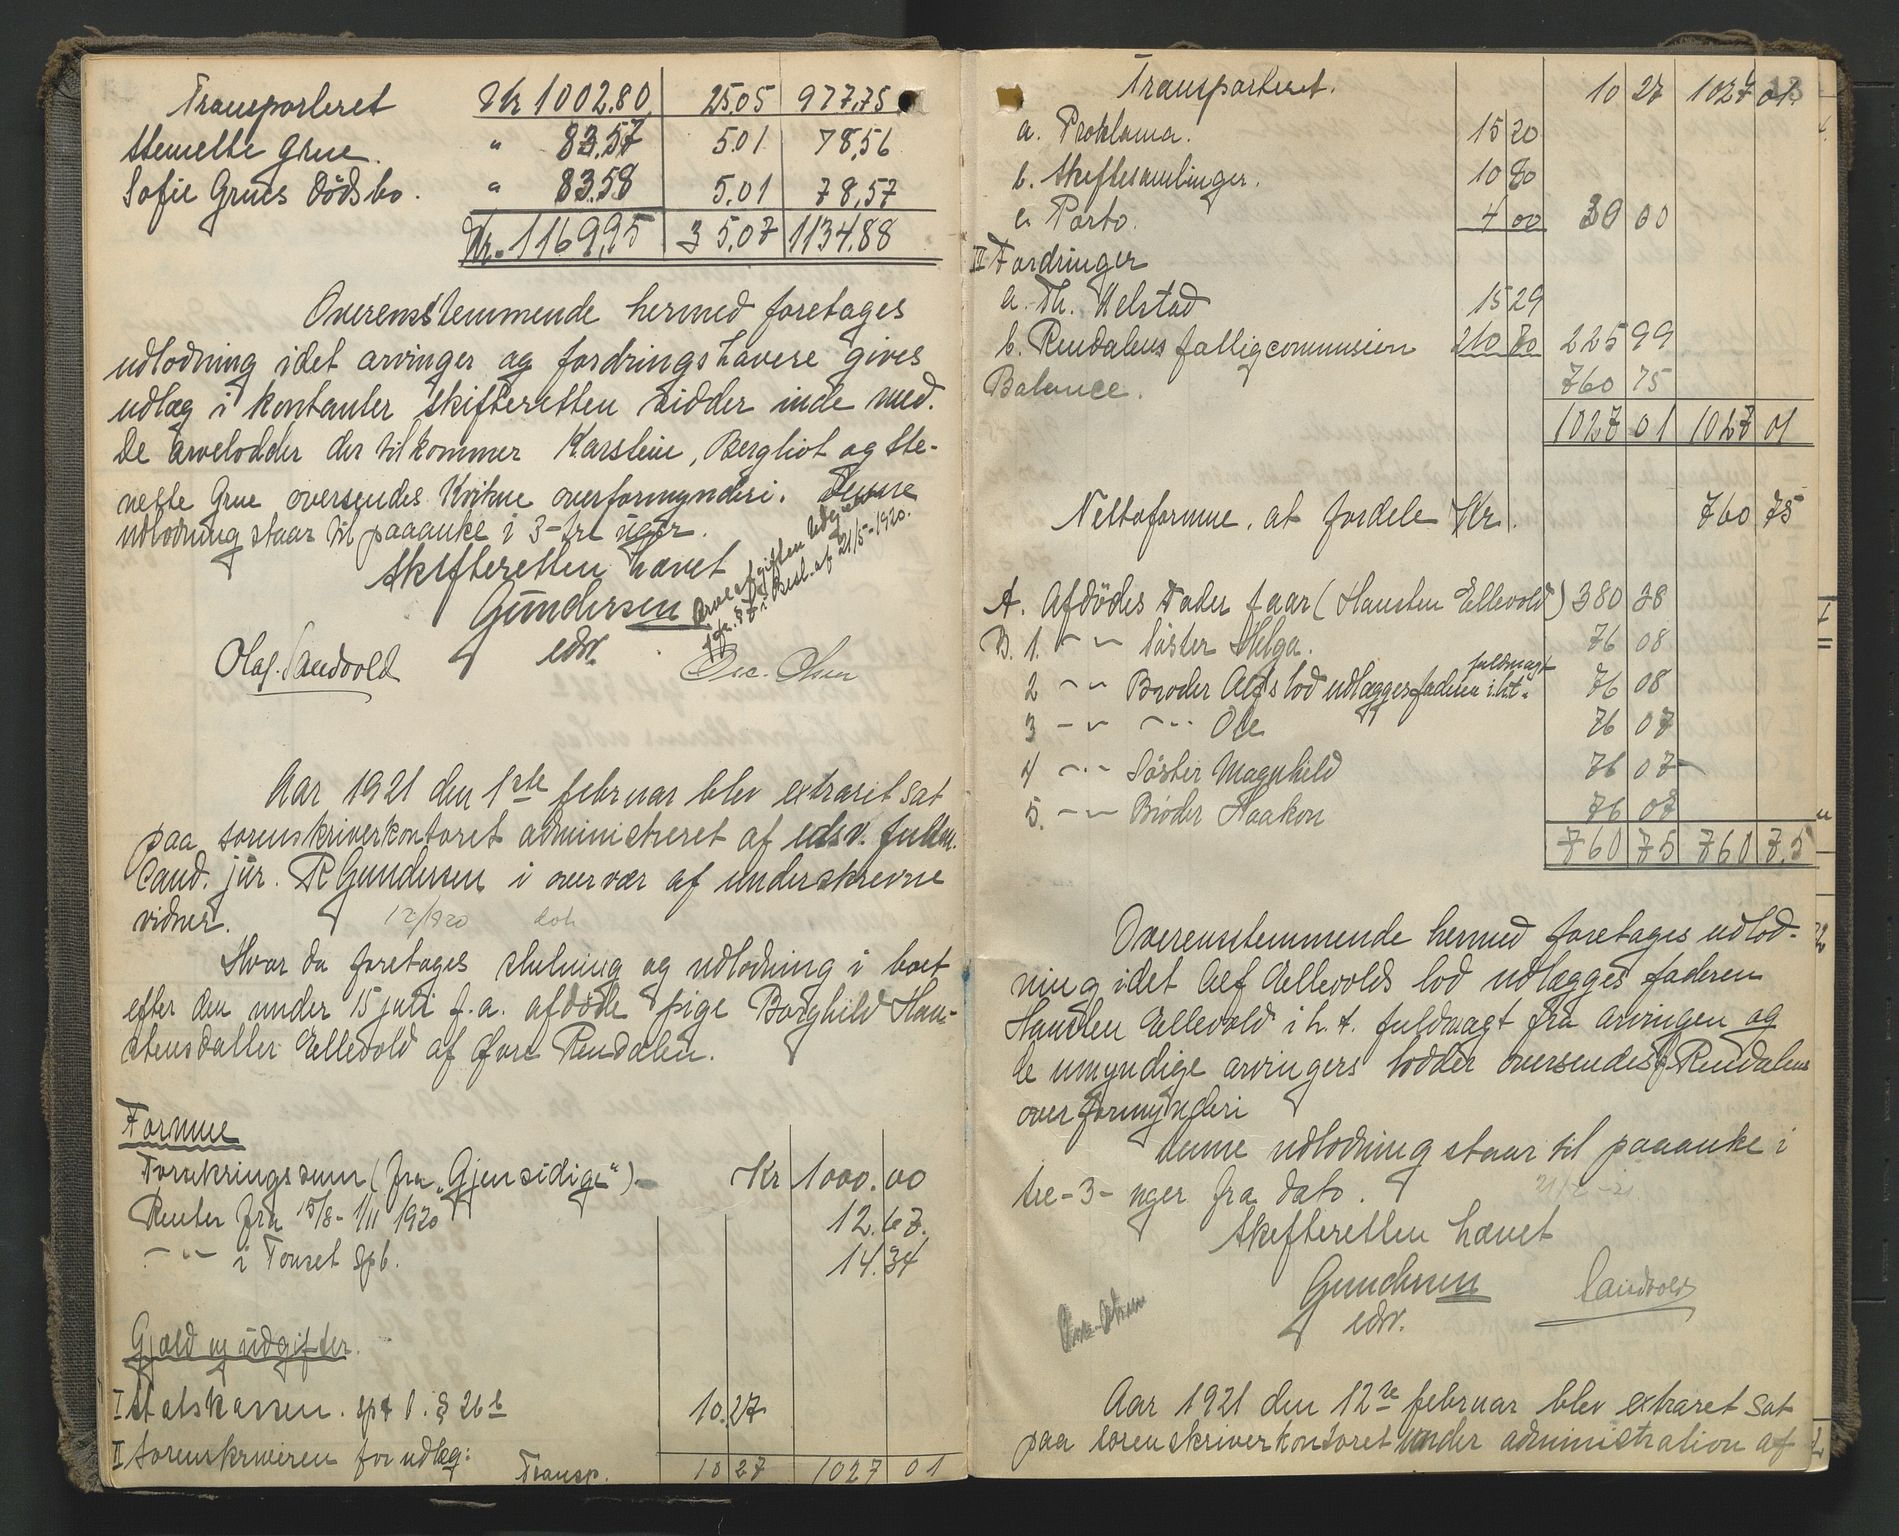 Transporteret Kr 1002.80 25.05 977,75
Stenette Grue. " 83.57 5.01 78,56
Sofie Grues dödsbo. " 83.58 5.01 78,57
Kr. 1169,95 35,07 1134,88
Overensstemmende hermed foretages
udlodning idet arvinger og fordringshavere gives
udlæg i kontanter skifteretten sidder inde med.
De arvelodder der tilkommer Karsten, Bergliot og Ste-
nette Grue oversendes Kvikne overformynderi. Denne
udlodning staar til paaanke i 3-tre uger.
Skifteretten hævet
Gundersen
edsv.
Arveafgiften
i Besl. af 21/5-1920.
Olaf Sandvold
Osc. Olsen
Aar 1921 den 1ste februar blev extraret sat
paa sorenskriverkontoret administreret af edsv. fuldm.
Cand. jur. R Gundersen i overvær af underskrevne
vidner. 12/1920
Hvor da foretoges slutning og udlodning i boet
efter den under 15 juli f.a. afdöde pige Borghild Han-
stensdatter Ellevold af Øvre Rendalen.
Formue
Forsikringssum (fra "Gjensidige") Kr 1000.00
Renter fra 15/8-1/11 1920 12.67.
-"- i Tönset spb. 14.34
Gjæld og udgifter.
I Statskassen. spt l. § 26 b 10.27
II Sorenskriveren for udlæg:
Transp. 10 27 1027 01
Transporteret. 10 27 1027 01.
a. Proklama. 15 20
b. Skiftesamlinger. 10 80
c. Porto. 4 00 30 00
III Fordringer
a. Th. Helstad 15 29
b. Rendalens fattigcommission 210 70 225 99
Balance. 760 75
1027 01 1027 01
Nettoformue. at fordele Kr. 760 75
A. Afdödes Fader faar (Hansten Ellevold) 380 38
B. 1. -"- Söster Helga. 76 08
2 -"- Broder Alfs lod udlægges faderen i.h.t. fuldmagt 76 08
3 -"- -"- Ole 76 07
4 -"- Söster Magnhild 76 07
5. -"- Broder Haakon 76 07
760 75 760 75
Overensstemmende hermed foretages udlod-
ning idet Alf Ellevolds lod udlægges faderen
Hansten Ellevold i h.t. fuldmagt fra arvingen og
de umyndige arvingers lodder oversendes Rendalens
overformynderi
Denne udlodning staar til paaanke i
tre-3-uger fra dato. 21/2-21
Skifteretten hævet
Gundersen
edsv.
Sandvold
Aar 1921 den 12te februar blev extraret sat
paa sorenskriverkontoret under administration af